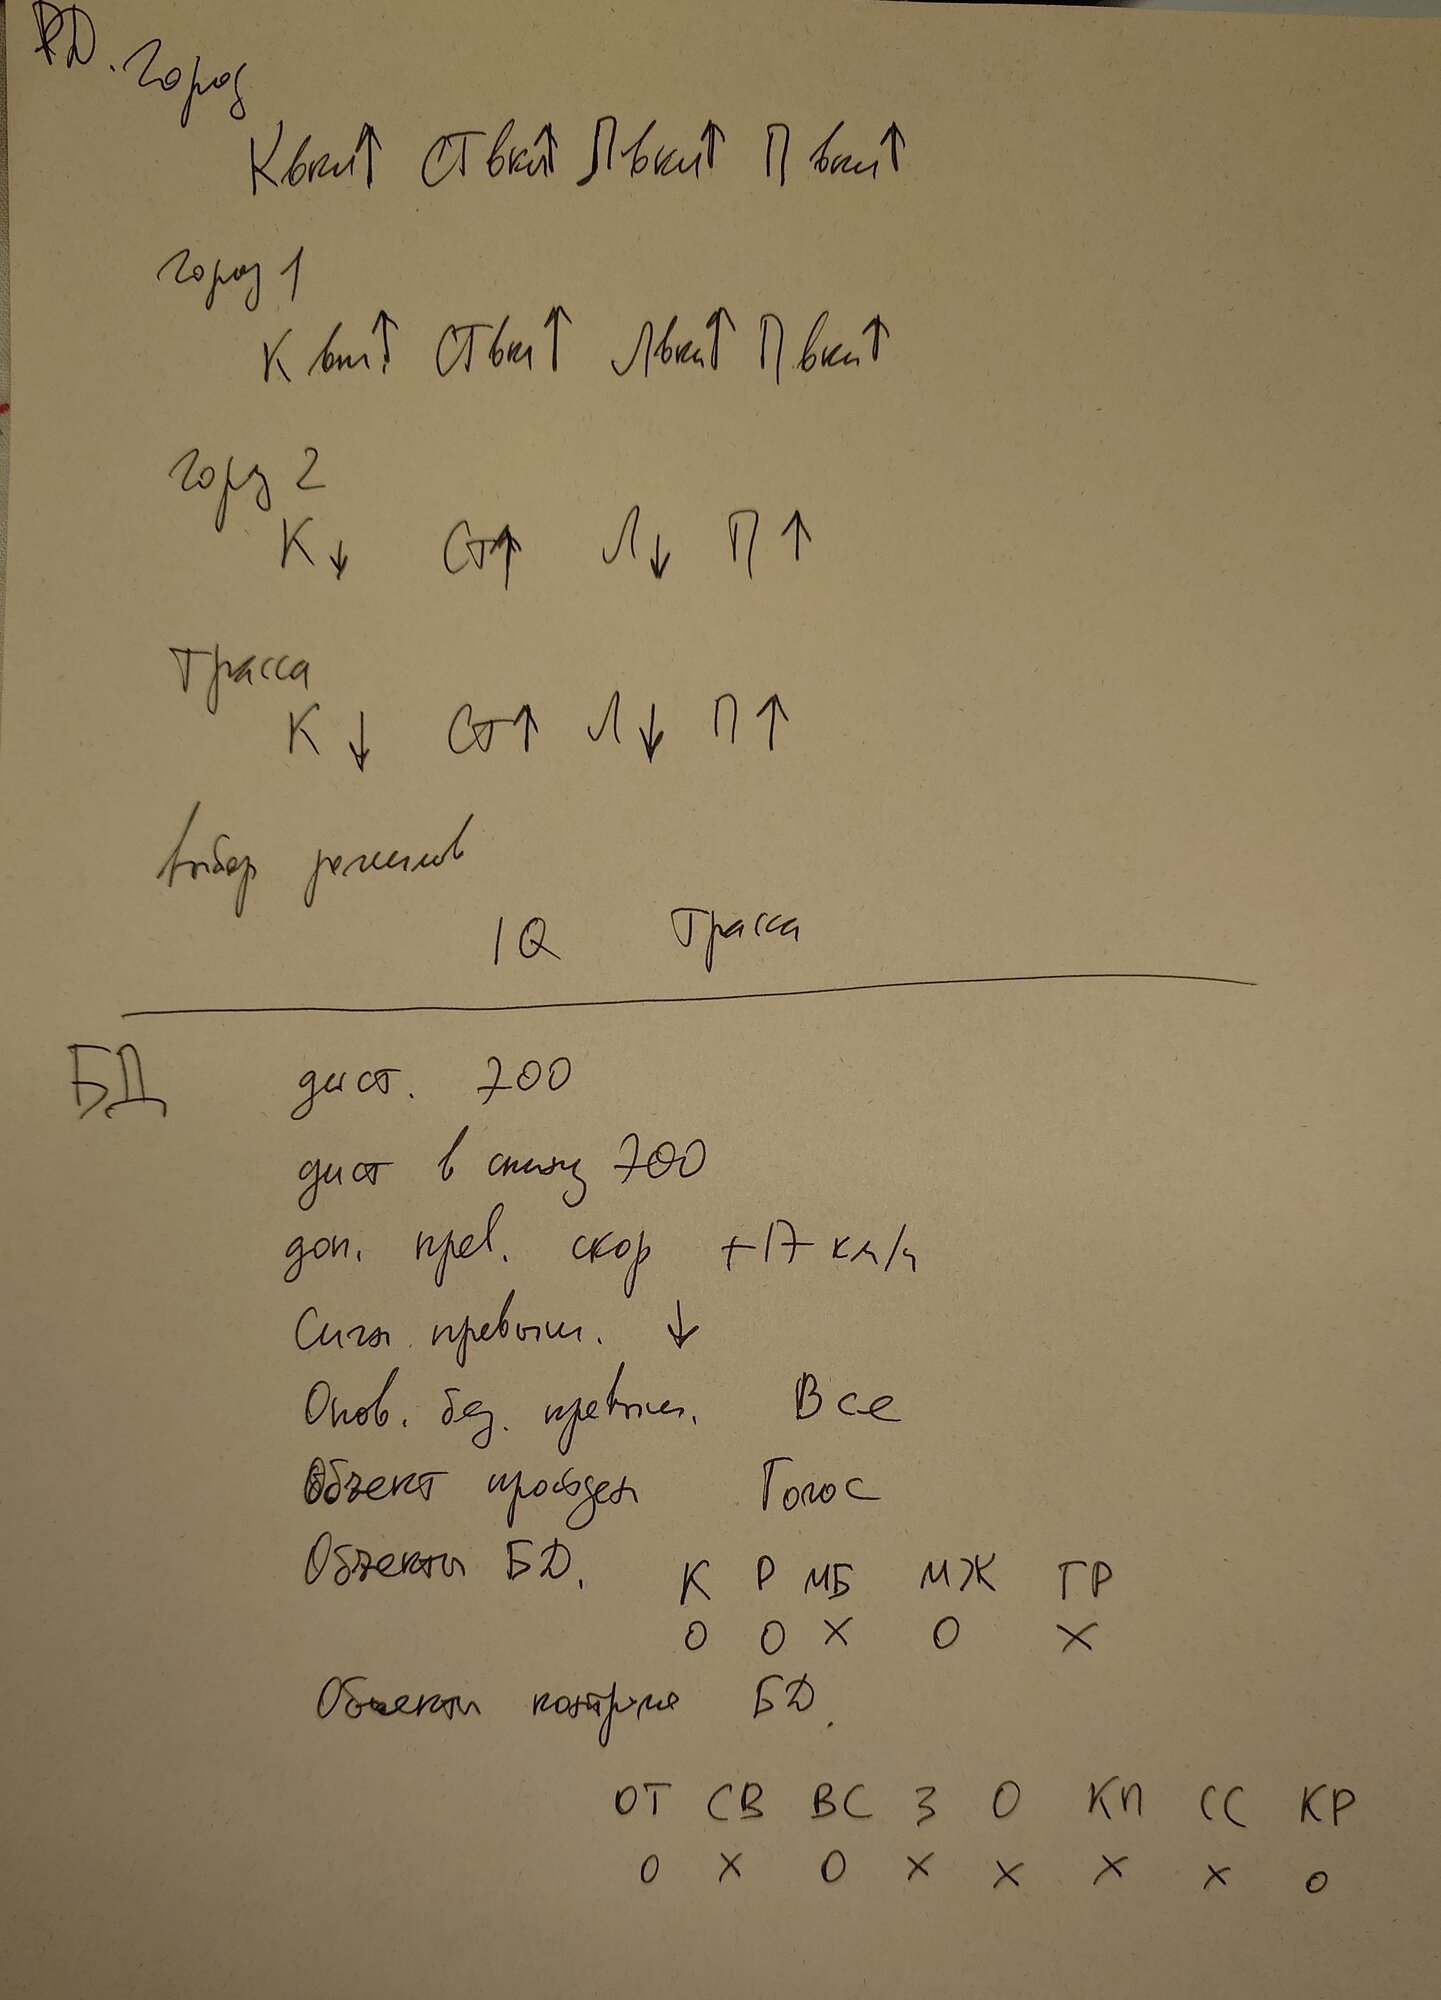 РД. Город
К вкл↑ СТ вкл↑ Л вкл↑ П вкл↑
Город 1
К вкл↑ СТ вкл↑ Л вкл↑ П вкл↑
Город 2
К↓ Ст↑ Л↓ П↑
Трасса
К↓ Ст↑ Л↓ П↑
Выбор режимов
IQ Трасса
БД дист. 700
дист в спину 700
доп. прев. скор +17 км/ч
Сигн. превыш. ↓
Опов. без. превыш. Все
Объект пройден Голос
Объекты БД. К Р МБ МЖ ТР
О О X О X
Объекты контроля БД.
ОТ СВ ВС З О КП СС КР
О X О X X X X О